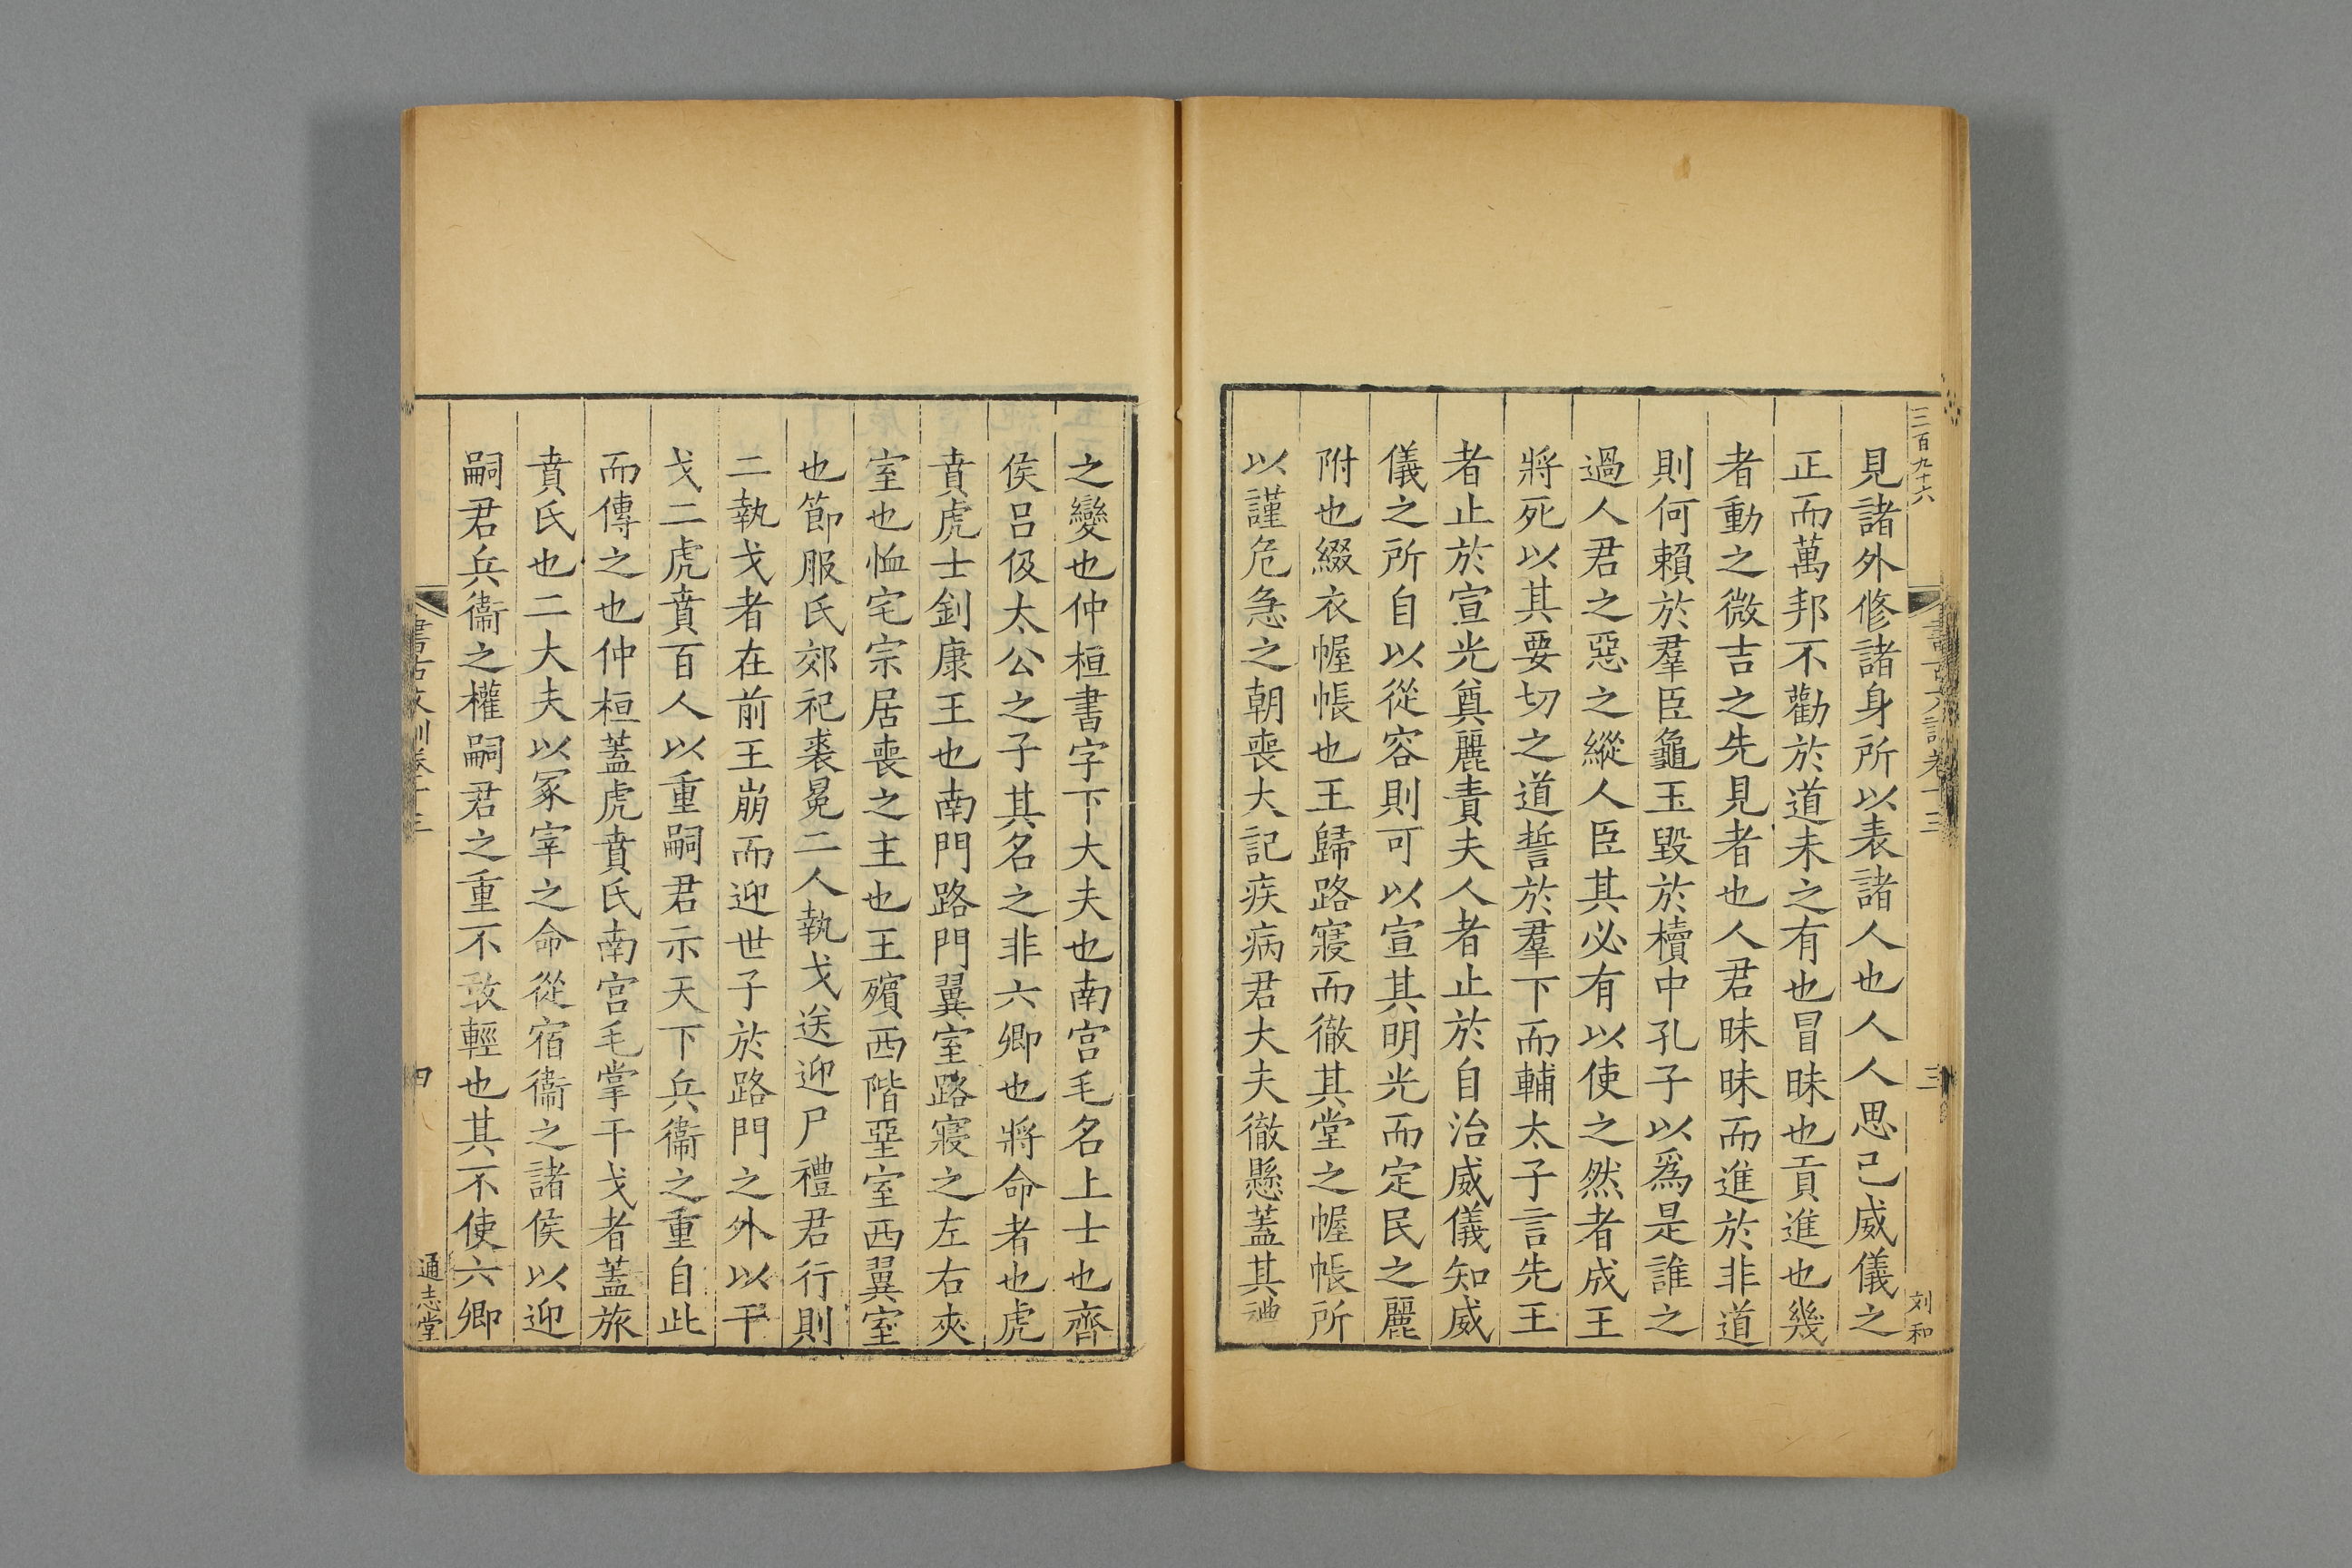 三百九十六
書古文訓卷十三
三
刘和
見諸外修諸身所以表諸人也人人思己威儀之
正而萬邦不勸於道未之有也冒昧也貢進也幾
者動之微吉之先見者也人君昧昧而進於非道
則何賴於羣臣龜玉毀於櫝中孔子以爲是誰之
過人君之惡之縱人臣其必有以使之然者成王
將死以其要切之道誓於羣下而輔太子言先王
者止於宣光奠麗責夫人者止於自治威儀知威
儀之所自以從容則可以宣其明光而定民之麗
附也綴衣幄帳也王歸路寢而徹其堂之幄帳所
以謹危急之朝喪大記疾病君大夫徹懸蓋其禮
之變也仲桓書字下大夫也南宫毛名上士也齊
侯呂伋太公之子其名之非六卿也將命者也虎
賁虎士釗康王也南門路門翼室路寢之左右夾
室也恤宅宗居喪之主也王殯西階堊室西翼室
也節服氏郊祀裘冕二人執戈送迎尸禮君行則
二執戈者在前王崩而迎世子於路門之外以干
戈二虎賁百人以重嗣君示天下兵衞之重自此
而傳之也仲桓蓋虎賁氏南宫毛掌干戈者蓋旅
賁氏也二大夫以冢宰之命從宿衞之諸侯以迎
嗣君兵衞之權嗣君之重不敢輕也其不使六卿
書古文訓卷十三
四
通志堂